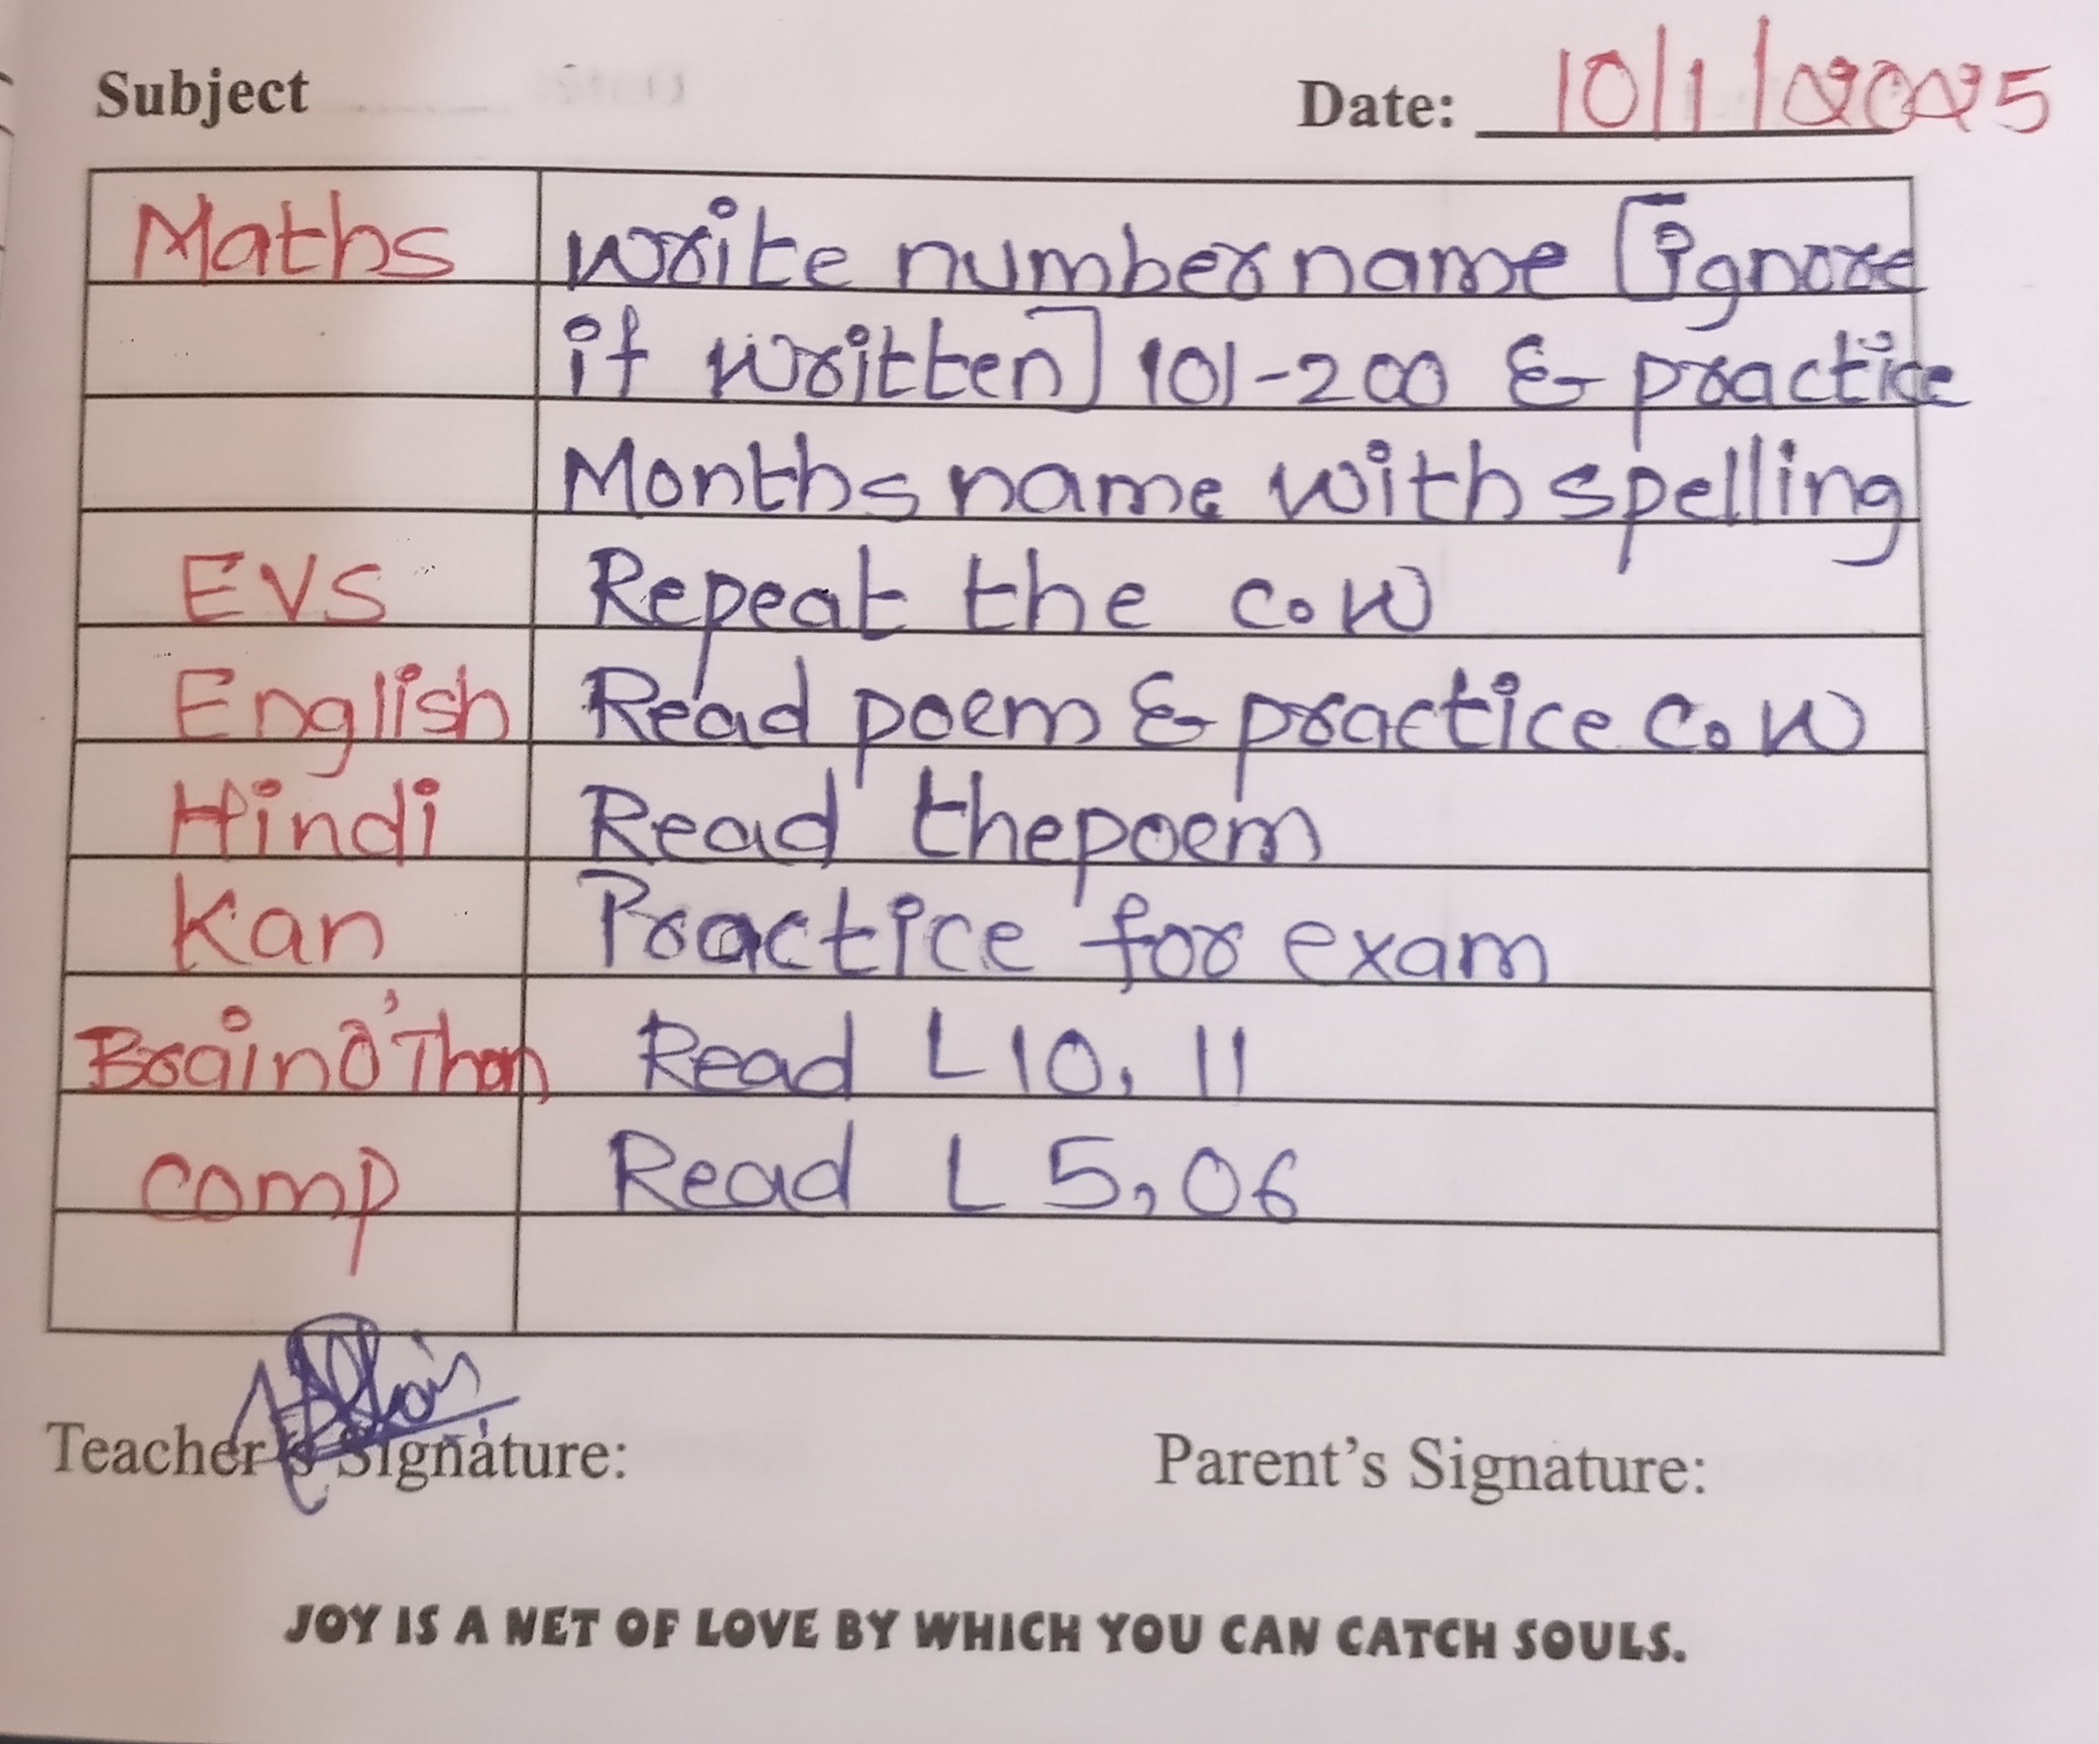 Subject Date: 10/1/2025
Maths write number name [ignore
if written] 101-200 & practice
Months name with spelling
EVS Repeat the C.W
English Read poem & practice C.W
Hindi Read the poem
Kan Practice for exam
Brain O' Than Read L 10, 11
comp Read L 5, 06
Teacher's Signature: Parent's Signature:
JOY IS A NET OF LOVE BY WHICH YOU CAN CATCH SOULS.